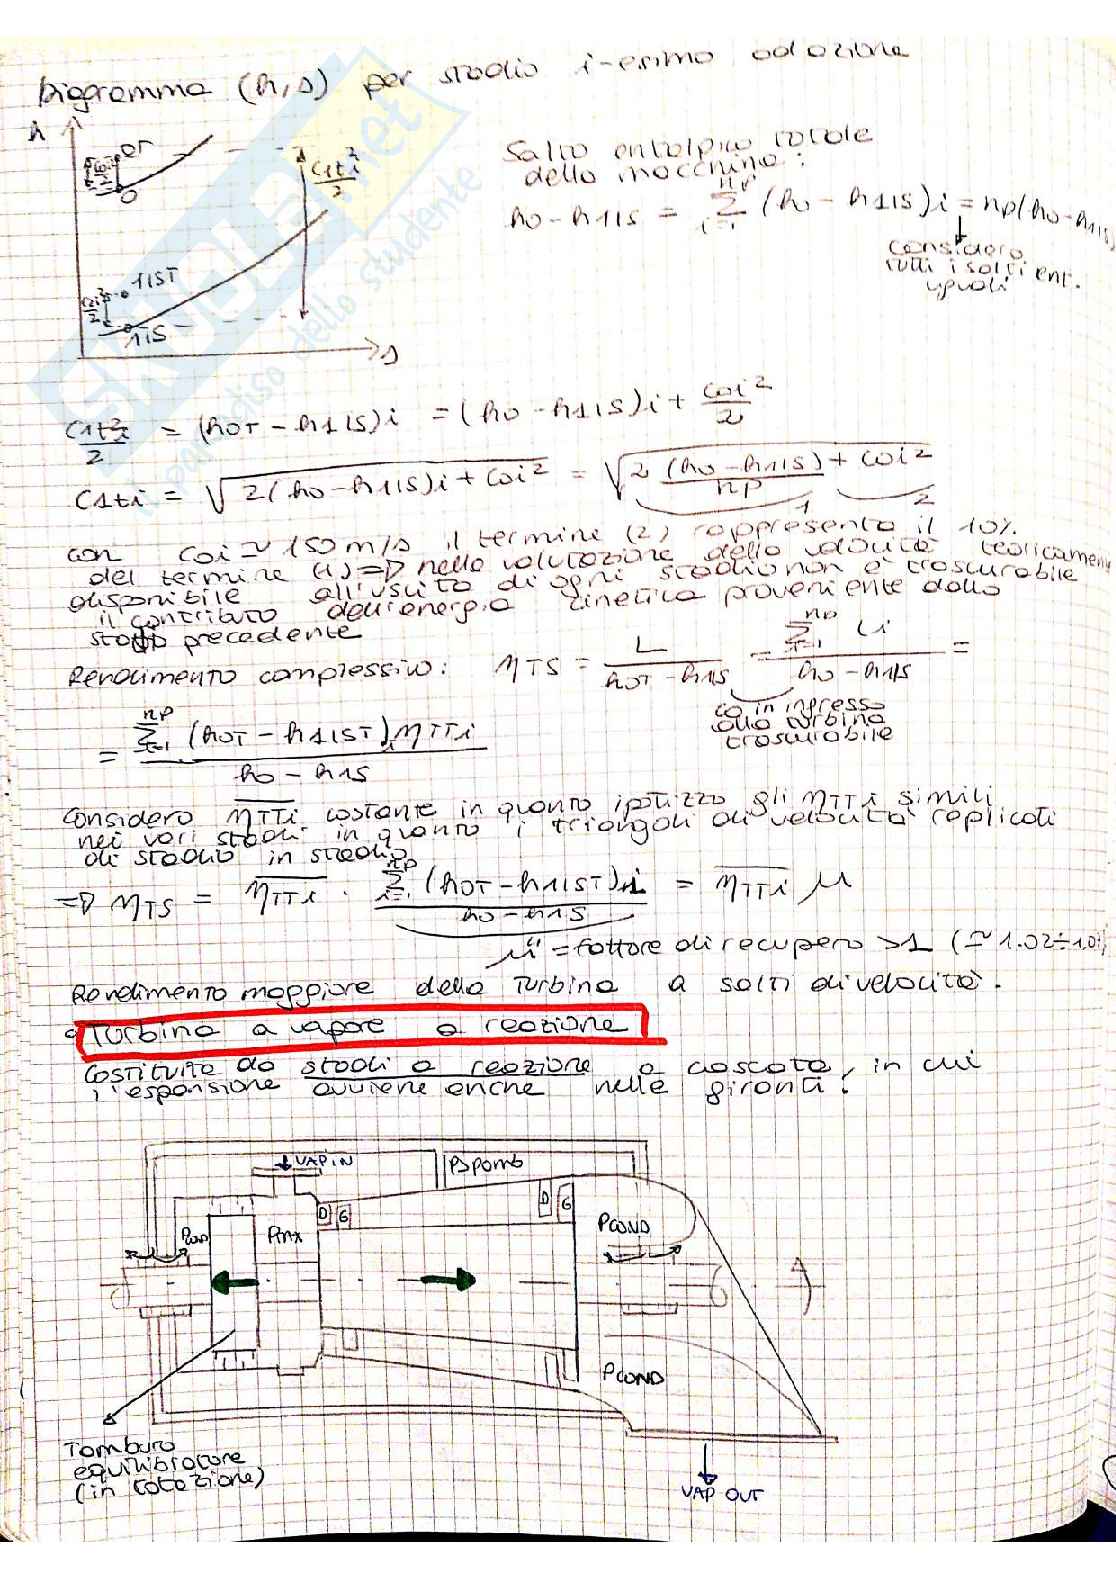 Diagramma (h,s) per stadio i-esimo ad azione
h
0T
0
c1ti²/2
1IST
1IS
s
Salto entalpico totale
della macchina:
h0 - h1IS = Σ (h0 - h1IS)i = np(h0 - h1IS)
np
i=1
Considero
tutti i salti ent.
uguali
c1ti²/2 = (h0T - h1IS)i = (h0 - h1IS)i + c0i²/2
c1ti = √2(h0 - h1IS)i + c0i² = √2 (h0 - h1IS)/np + c0i²
1 2
con c0i ≃ 150 m/s il termine (2) rappresenta il 10%
del termine (1) => nella valutazione della velocità teoricamente
disponibile all'uscita di ogni stadio non è trascurabile
il contributo dell'energia cinetica proveniente dallo
stadio precedente
Rendimento complessivo: ηTS = L/(h0T - h1IS) = Σ Li/(h0 - h1IS) =
np
i=1
c0 in ingresso
alla turbina
trascurabile
= Σ (h0T - h1IST)i ηTTi / (h0 - h1IS)
np
i=1
Considero ηTTi costante in quanto ipotizzo gli ηTTi simili
nei vari stadi in quanto i triangoli di velocità replicati
di stadio in stadio
=> ηTS = ηTTi · Σ (h0T - h1IST)i / (h0 - h1IS) = ηTTi μ
np
i=1
μ = fattore di recupero >1 (≃ 1.02÷
Rendimento maggiore della turbina a salti di velocità.
Turbina a vapore a reazione
Costituita da stadi a reazione a cascata, in cui
l'espansione avviene anche nelle giranti.
VAP IN
Δpomb
D G
D G
PCOND
Pmx
PCOND
PCOND
Tamburo
equilibratore
(in rotazione)
VAP OUT